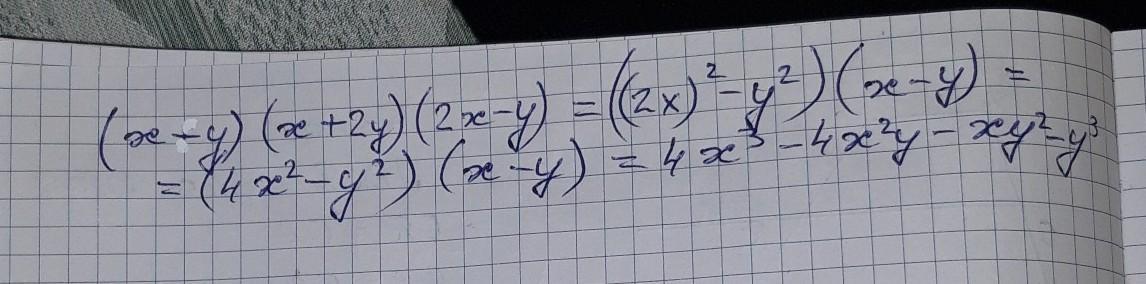 (x-y)(x+2y)(2x-y) = ((2x)²-y²)(x-y) =
= (4x²-y²)(x-y) = 4x³-4x²y-xy²-y³